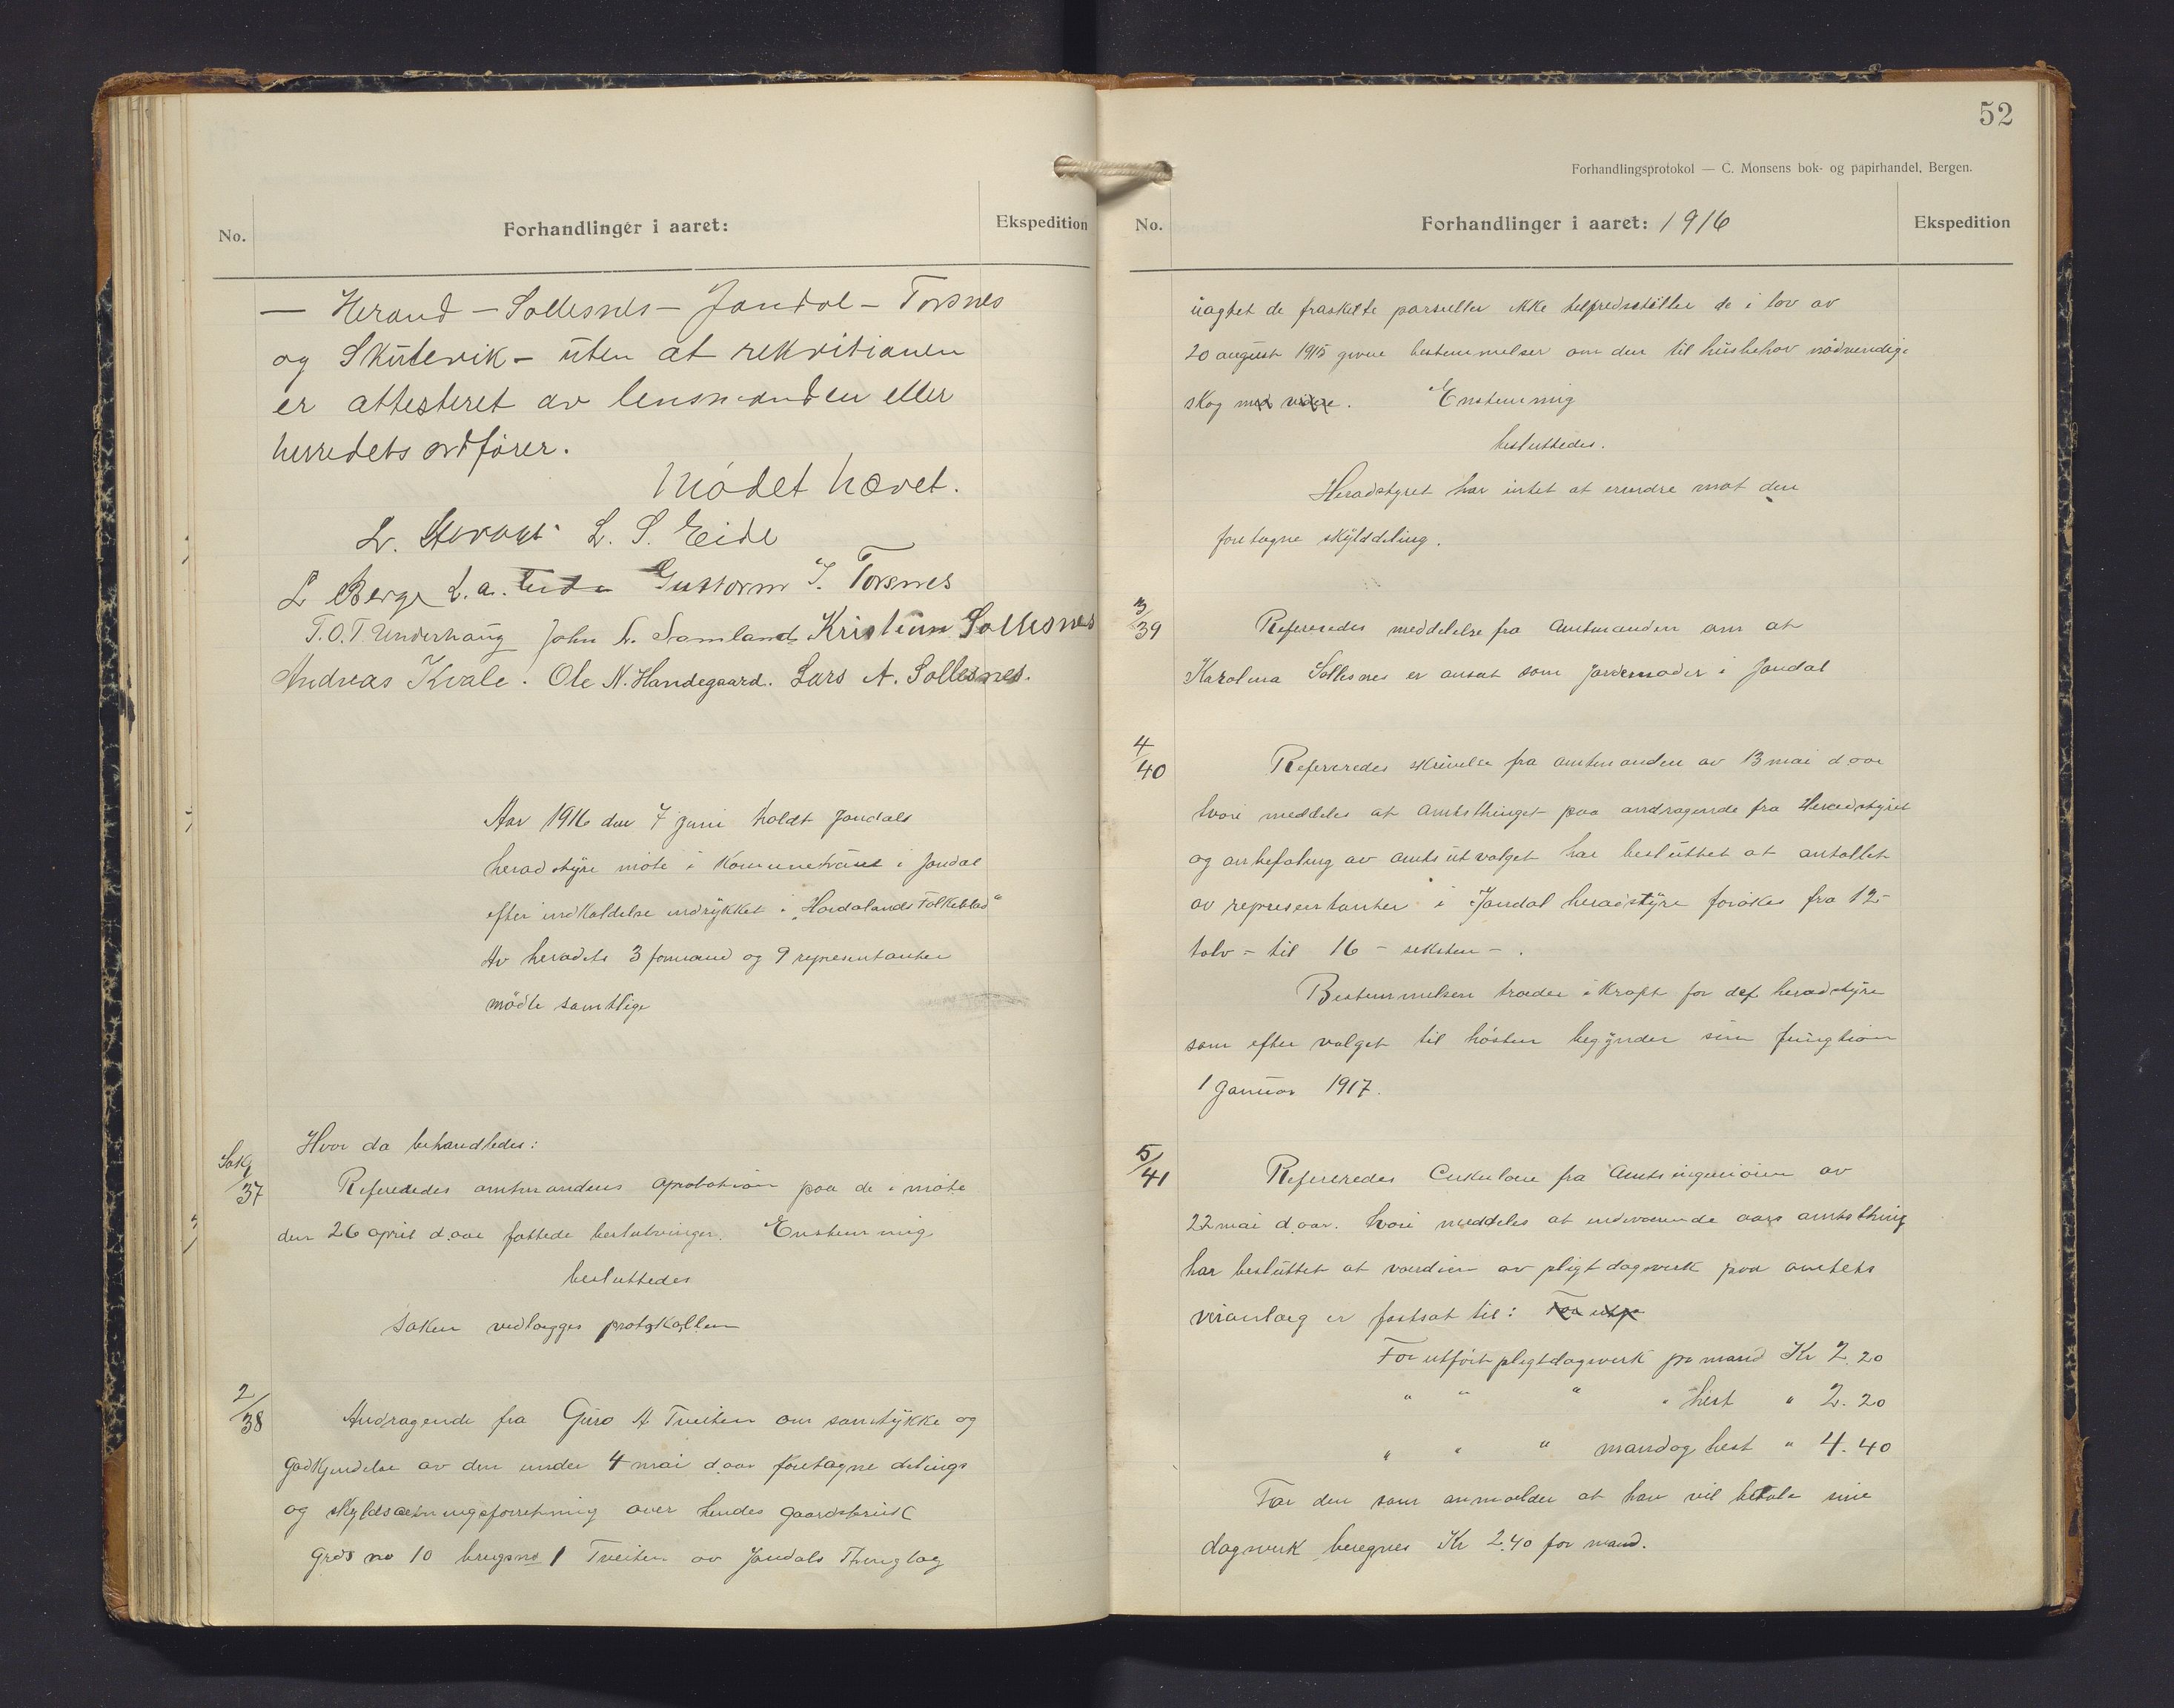 No.
Forhandlinger i aaret:
Ekspedition
— Herand – Sollesnes – Jondal – Torsnes
og Skutevik – uten at rekvisitionen
er attesteret av lensmanden eller
herredets ordfører.
Mødet hævet.
L. Herand L. S. Eide
L Berge L. A. Guttorm J. Torsnes
T.O.T. Underhaug John L. Samland Kristian Sollesnes
Andreas Kvale. Ole N. Handegaard. Lars A. Sollesnes.
Aar 1916 den 7 juni holdt Jondals
heradstyre møte i Komunehuset i Jondal
efter indkaldelse indrykket i „Hordalands Folkeblad"
Av heradets 3 formænd og 9 representanter
mødte samtlige
Hvor da behandledes:
Sak 1/37
Refereredes amtmandens aprobation paa de i møte
den 26 april d.aar fattede beslutninger. Enstemmig
besluttedes
Saken vedlægges protokollen
2/38
Andragende fra Guro A Tveiten om samtykke og
godkjendelse av den under 4 mai d.aar foretagne delings
og skyldsætningsforretning over hendes gaardsbruk
Grds no 10 brugsno 1 Tveiten av Jondals Thinglag
52
Forhandlingsprotokol — C. Monsens bok- og papirhandel, Bergen.
No.
Forhandlinger i aaret: 1916
Ekspedition
uagtet de fraskilte parseller ikke tilfredsstiller de i lov av
20 august 1915 givne bestemmelser om den til husbehov nødvendige
skog med videre. Enstemmig
besluttedes.
Heradstyret har intet at erindre mot den
foretagne skylddeling.
3/39
Refereredes meddelelse fra Amtmanden om at
Karolina Sollesnes er ansat som jordemoder i Jondal
4/40
Refereredes skrivelse fra amtmanden av 13 mai d aar
hvori meddeles at Amtsthinget paa andragende fra Heradstyret
og anbefaling av amtsutvalget har besluttet at antallet
av representanter i Jondal heradstyre forøkes fra 12 –
tolv – til 16 – seksten – .
Bestemmelsen træder i kraft for det heradstyre
som efter valget til høsten begynder sin fungtion
1 Januar 1917.
5/41
Refereredes Cirkulære fra Amtsingeniøren av
22 mai d.aar. hvori meddeles at indeværende aars amtsthing
har besluttet at værdien av pligtdagsverk paa amtets
veianlæg er fastsat til: For utfø
For utført pligtdagsverk pr mand Kr 2.20
" " " " hest " 2.20
" " " mand og hest " 4.40
For den som anmælder at han vil betale sine
dagsverk beregnes Kr 2.40 for mand.